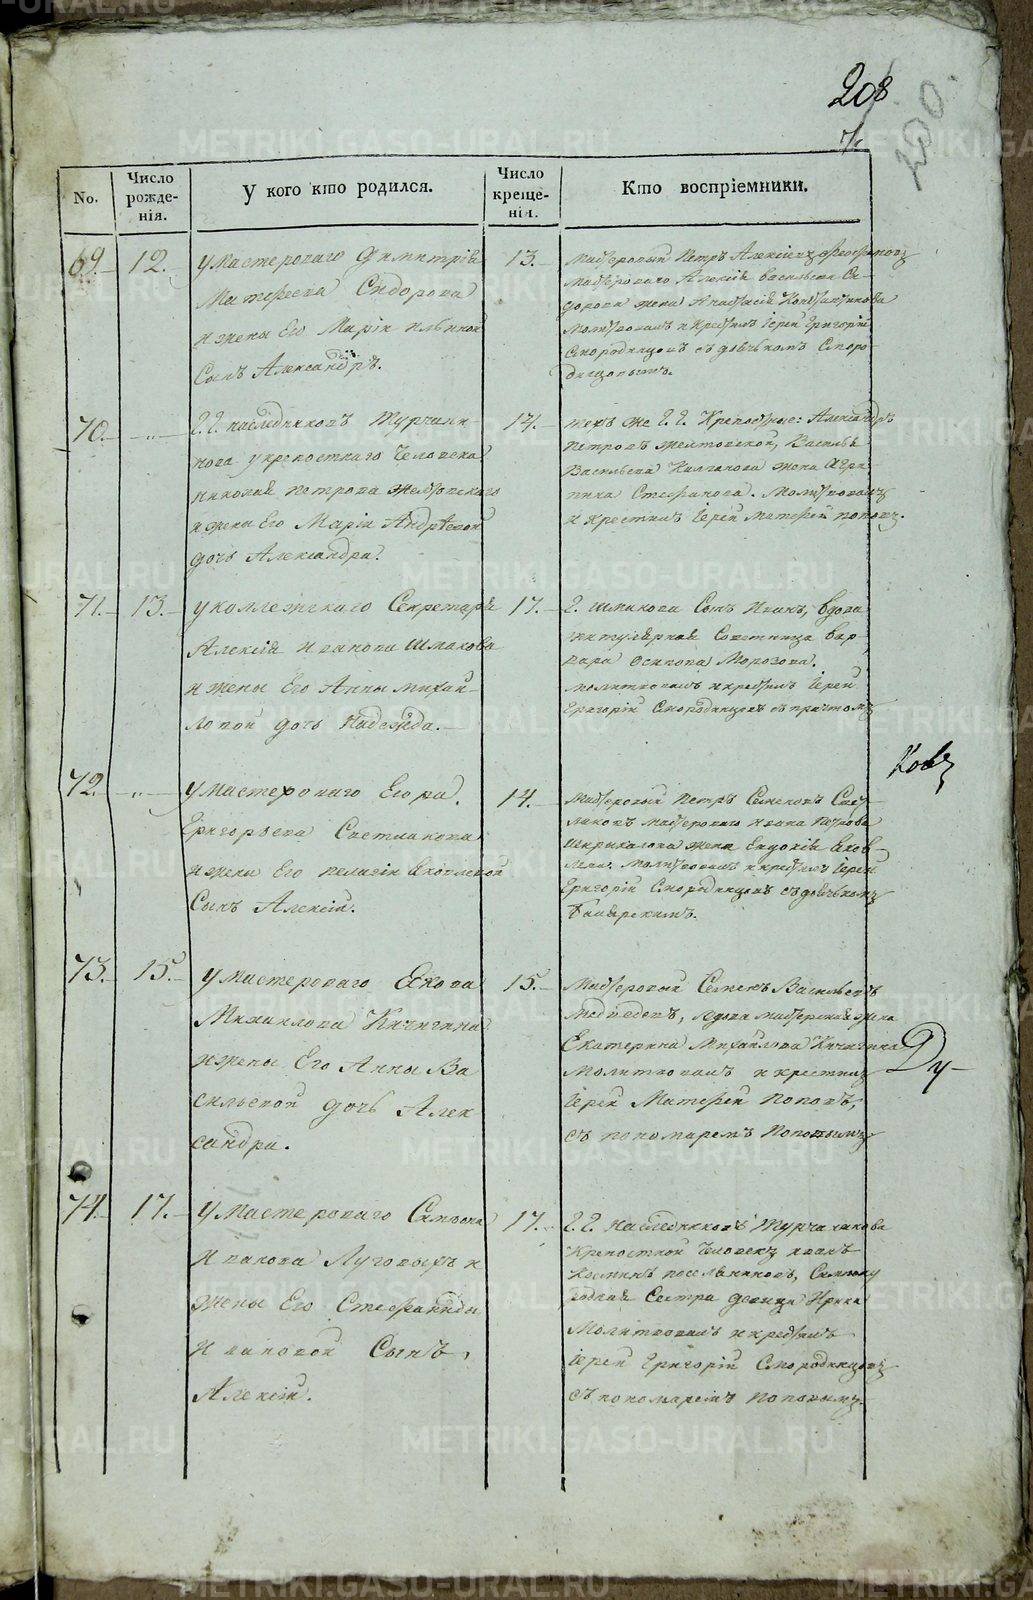 208
200.
No.
Число рожде-нія.
У кого кто родился.
Число креще-нія.
Кто воспріемники.
69.
12.
у мастероваго Димитрія
Матфеева Сидорова
и жены Его Маріи Ильиной
Сынъ Александръ.
13.
Мастеровый Петръ Алексіевъ
мастероваго Алексія Васильева Си-
дорова жена Анастасія Константинова
Молитвовалъ и крестилъ Іерей Григорій
Смородинцовъ съ дьячкомъ Сморо-
динцовымъ.
70.
Г.Г. наследниковъ Турчани-
нова у крепостнаго Человека
Николая Петрова Желтовскаго
и жены Его Маріи Андрѣевой
дочь Александра.
14.
техъ же Г.Г. Крепостные: Александръ
Петровъ Желтовской, Василья
Васильева Калганова жена Агри-
пина Стефанова. Молитвовалъ
и крестилъ Іерей Матфей Поповъ.
71.
13.
у коллежскаго Секретаря
Алексія Иванова Шмакова
и жены Его Анны Михай-
ловой дочь Надежда.
17.
Г. Шмакова Сынъ Иванъ, вдова
титулярная Советница Вар-
вара Осипова Морозова.
молитвовалъ и крестилъ Іерей
Григорій Смородинцовъ съ причтомъ
72.
у мастероваго Егора
Григорьева Светлакова
и жены Его Пелагіи Яковлевой
Сынъ Алексій.
14.
Мастеровый Петръ Семеновъ Свет-
лаковъ мастероваго Ивана Петрова
жена Евдокія Яков-
лева. Молитвовалъ и крестилъ Іерей
Григорій Смородинцовъ съ дьячкомъ
73.
15.
у мастероваго Якова
Михайлова Кичигина
и жены Его Анны Ва-
сильевой дочь Алек-
сандра.
15.
Мастеровый Семенъ Васильевъ
Медведевъ, вдова мастерская жена
Екатерина Михайлова Кичигина
Молитвовалъ и крестилъ
Іерей Матфей Поповъ,
съ пономаремъ Поповымъ
74.
17.
у мастероваго Симеона
Иванова Луговыхъ и
жены Его Стефаниды
Ивановой Сынъ
Алексій.
17.
Г.Г. наследниковъ Турчанинова
Крепостной Человекъ Иванъ
Козминъ Посельниковъ, Симеону
родная Сестра девица Ирина
Молитвовалъ и крестилъ
Іерей Григорій Смородинцовъ
съ пономаремъ Поповымъ.
METRIKI.GASO-URAL.RU